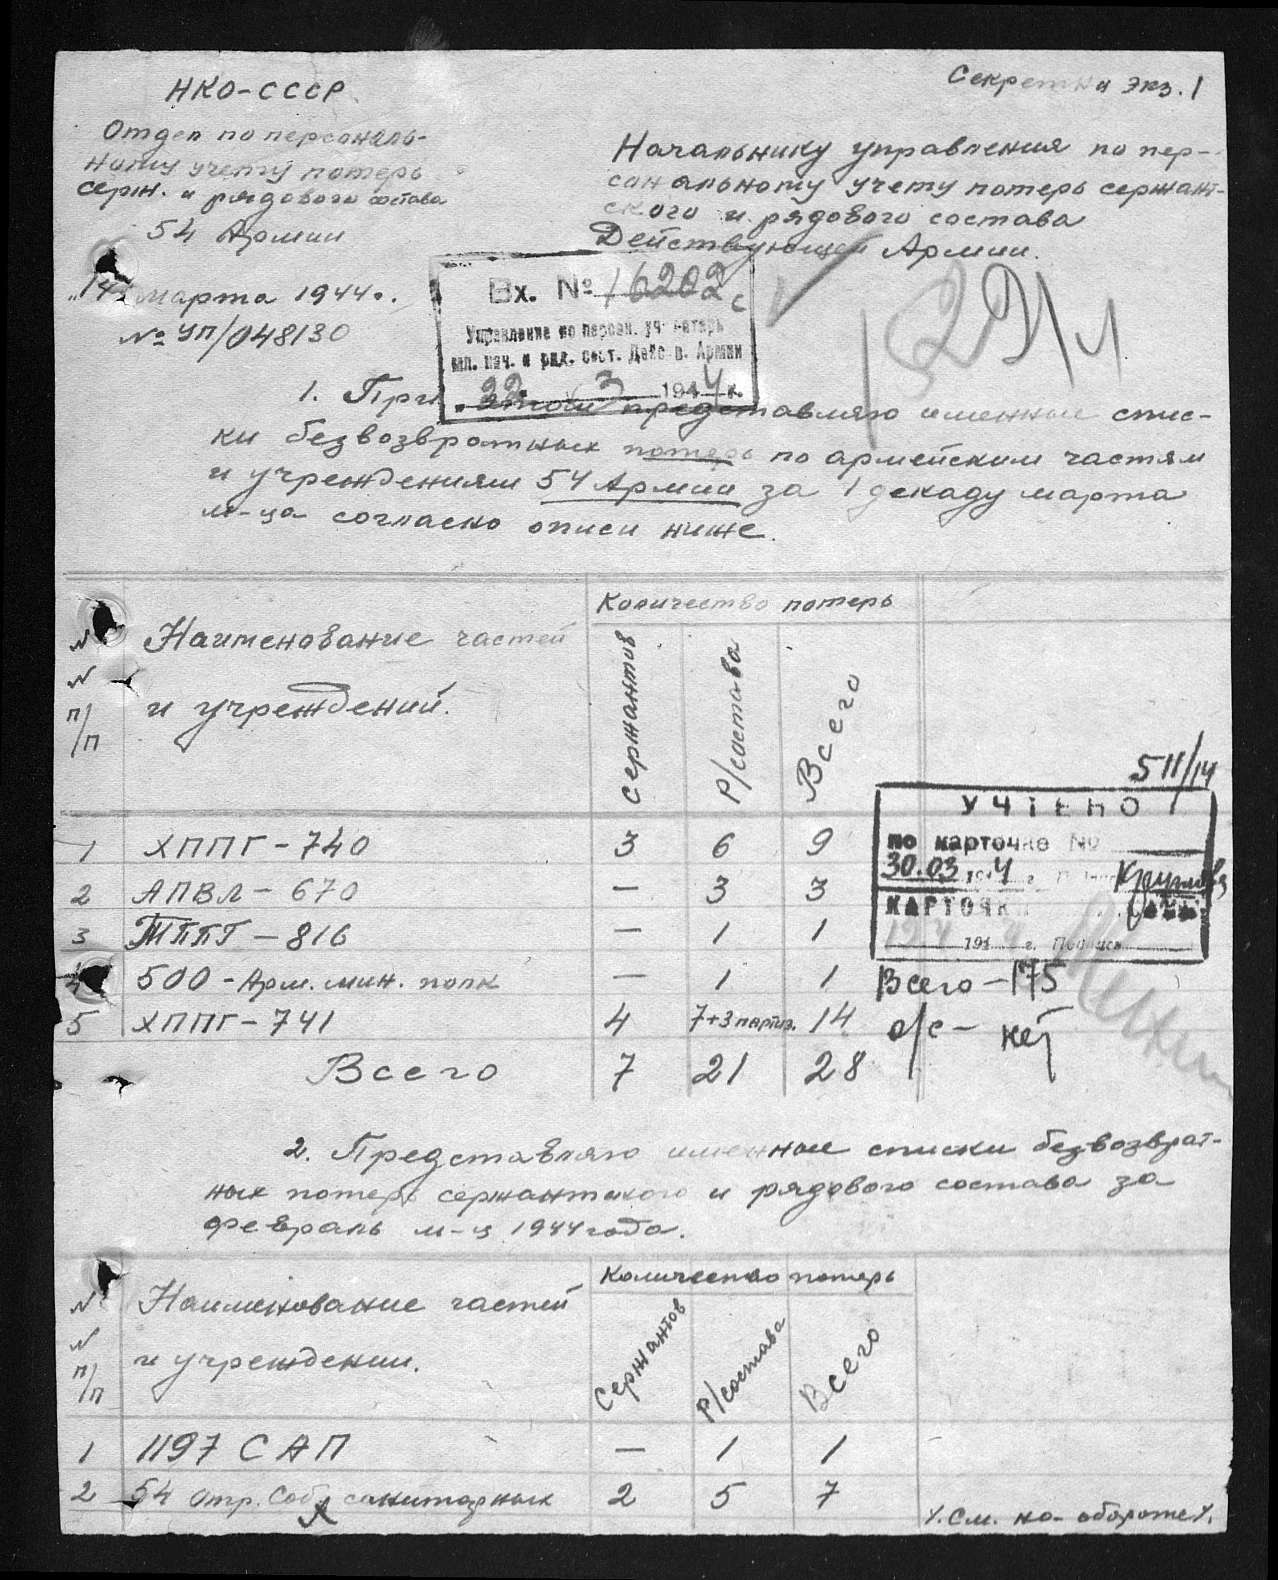 НКО-СССР
Секретно экз. 1
Отдел по персональ-
ному учету потерь
серж. и рядового состава
54 Армии
"14" марта 1944г.
№ УП/048130
Начальнику управления по пер-
сональному учету потерь сержант-
ского и рядового состава
Действующей Армии.
Вх. № 16202с
Управление по персон. уч. потерь
мл. нач. и ряд. сост. Дейс-в. Армии
22 3 1944 г.
1. При этом представляю именные спис-
ки безвозвратных потерь по армейским частям
и учреждениям 54 Армии за 1 декаду марта
м-ца согласно описи ниже.
№ № п/п
Наименование частей
и учреждений.
Количество потерь
Сержантов
Р/состава
Всего
511/14
УЧТЕНО
по карточке №
30.03 1944 г.
КАРТОЧКА
194 г. Подпись
1 ХППГ-740 3 6 9
2 АПВЛ-670 — 3 3
3 ТППГ-816 — 1 1
4 500-Арм. мин. полк — 1 1
5 ХППГ-741 4 7+3 партиз. 14
Всего 7 21 28
Всего-175
о/с- нет
2. Представляю именные списки безвозврат-
ных потерь сержантского и рядового состава за
февраль м-ц 1944 года.
№ № п/п
Наименование частей
и учреждении.
Количество потерь
Сержантов
Р/состава
Всего
1 1197 САП — 1 1
2 54 отр. Соб. санитарных 2 5 7
/. См. на обороте/.